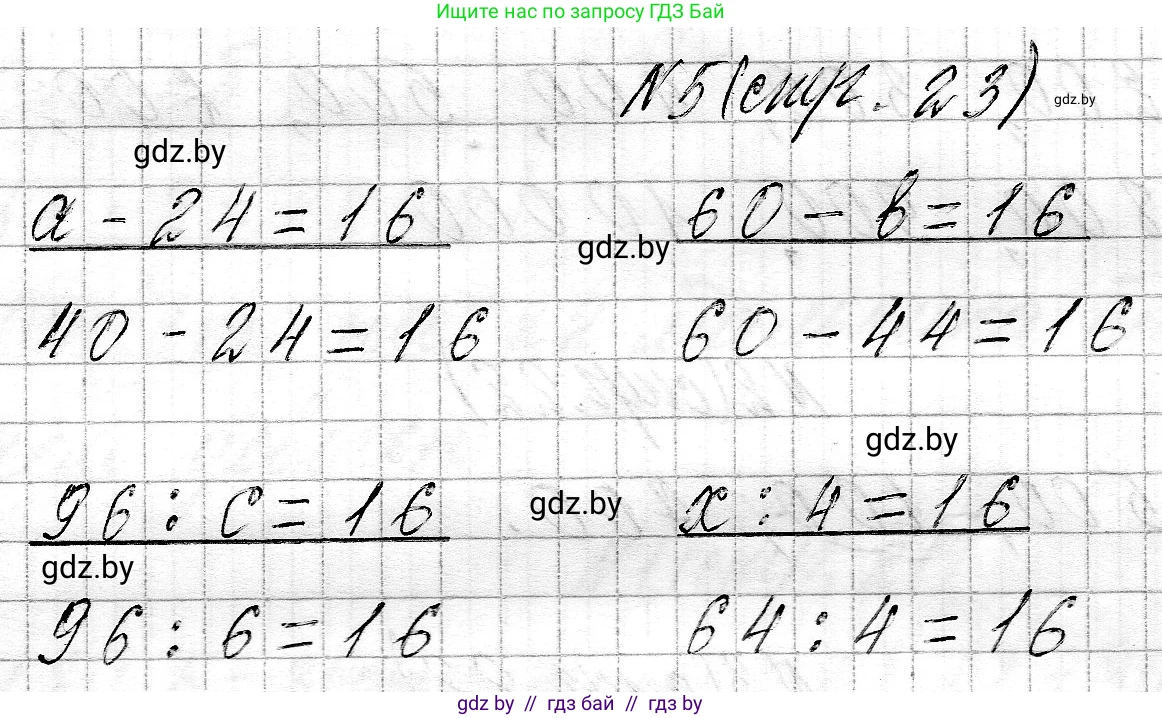 Ищите нас по запросу ГДЗ Бай
N5(стр. 23) gdz.by
gdz.by
a - 24 = 16 60 - b = 16
gdz.by
40 - 24 = 16 60 - 44 = 16
gdz.by
96 : c = 16 gdz.by x : 4 = 16
gdz.by
96 : 6 = 16 64 : 4 = 16
gdz by // гдз бай // гдз by